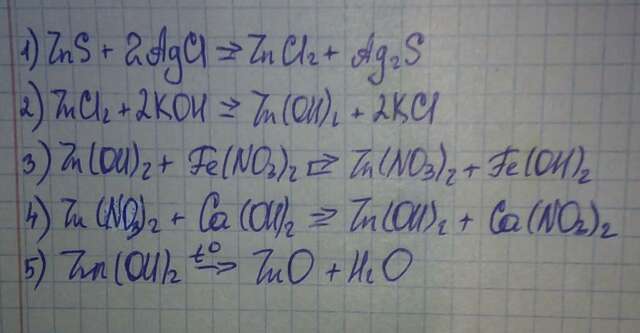 1) ZnS + 2AgCl ⇒ ZnCl₂ + Ag₂S
2) ZnCl₂ + 2KOH ⇒ Zn(OH)₂ + 2KCl
3) Zn(OH)₂ + Fe(NO₃)₂ ⇒ Zn(NO₃)₂ + Fe(OH)₂
4) Zn(NO₃)₂ + Ca(OH)₂ ⇒ Zn(OH)₂ + Ca(NO₃)₂
5) Zn(OH)₂ t⁰⇒ ZnO + H₂O